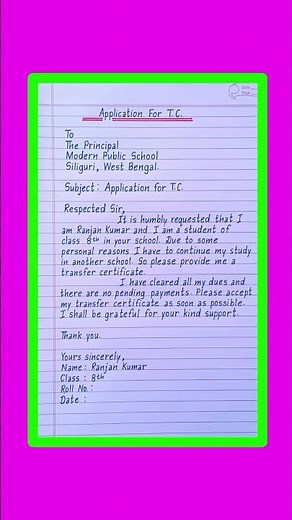 Application For T.C.
To
The Principal
Modern Public School
Siliguri, West Bengal.
Subject : Application for T.C.
Respected Sir,
It is humbly requested that I
am Ranjan Kumar and I am a student of
class 8th in your school. Due to some
personal reasons I have to continue my study
in another school. So please provide me a
transfer certificate.
I have cleared all my dues and
there are no pending payments. Please accept
my transfer certificate as soon as possible.
I shall be grateful for your kind support.
Thank you.
Yours sincerely,
Name : Ranjan Kumar
Class : 8th
Roll No. :
Date :